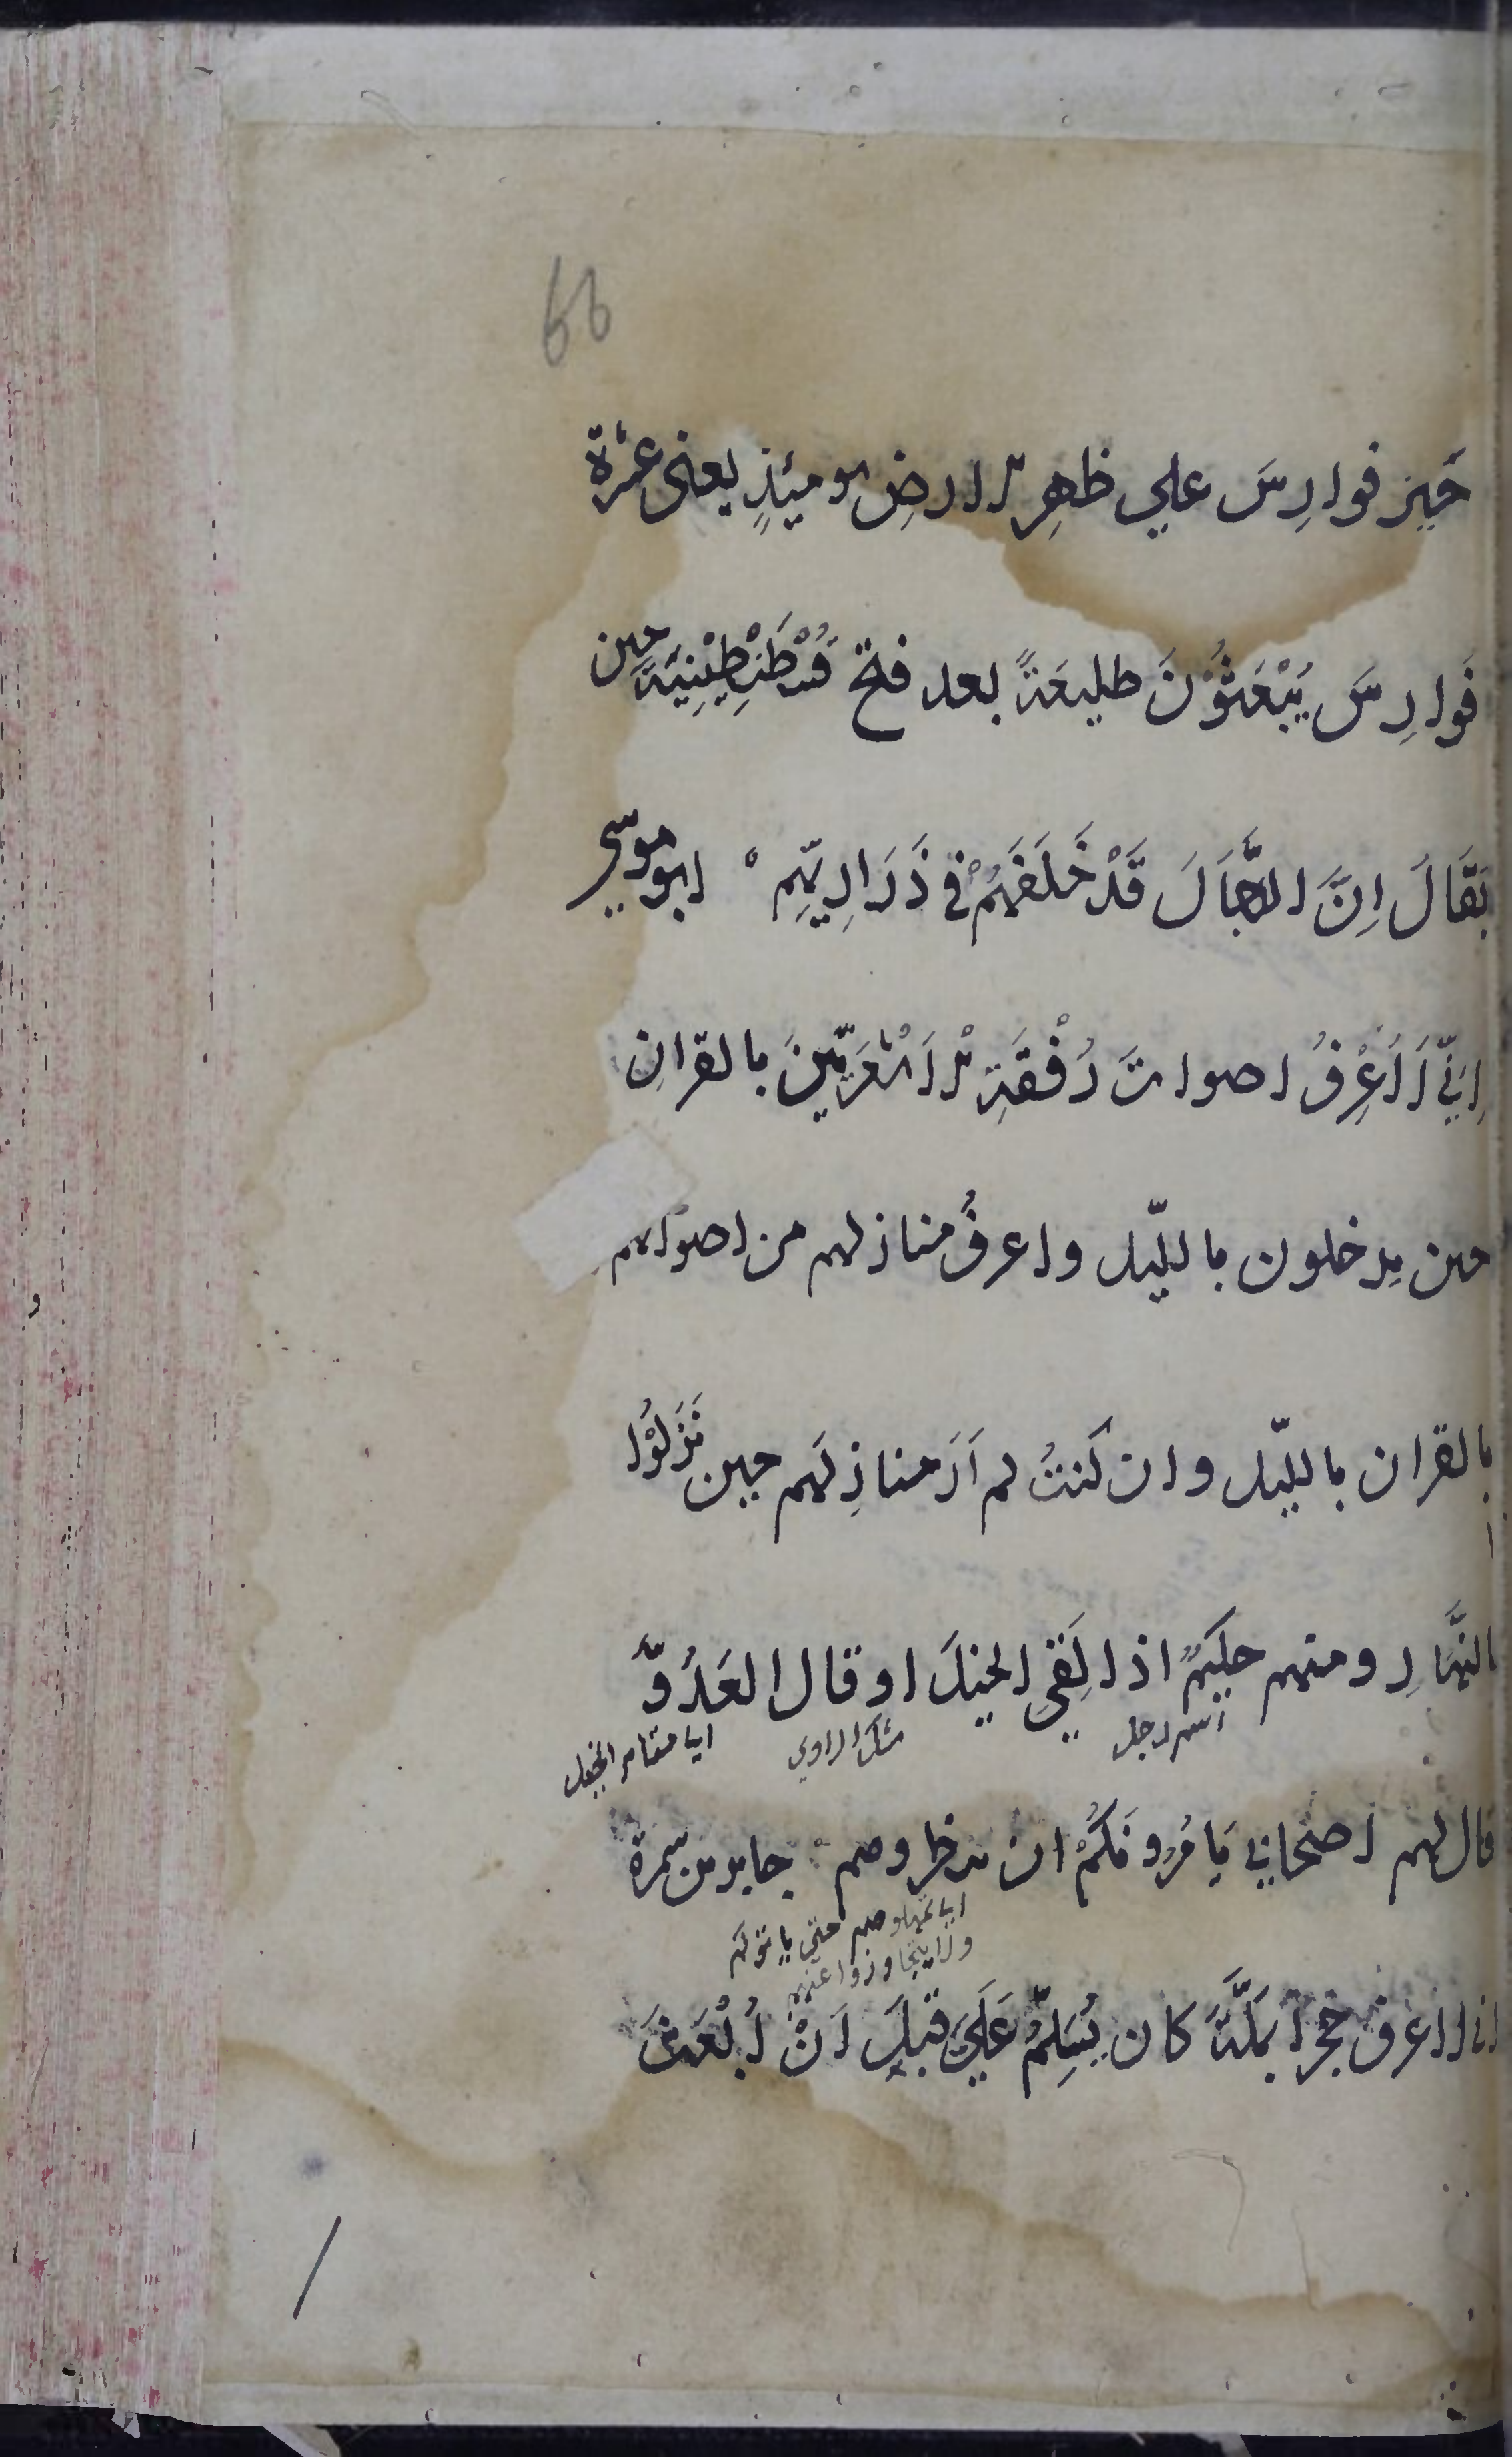 66
خَيرُ فوارِسَ علي ظهرِ الارضِ يومئِذٍ يعنى عشرة
فَوارِسَ يُبْعَثُوْنَ طليعَةً بعد فتح قُسْطَنْطِيْنِيَّةَ حين
يقَالَ اِنَّ الدَّجَّالَ قَدْ خَلَفَهُمْ في ذَرَارِيِّهِمْ ابوموسي
اِنِّي لَاَعْرِفُ اصواتَ رُفْقَةِ الْاَشْعَرِيِّينَ بالقرانِ
حين يدخلون بالليّل واعرفُ منازلهم من اصواتهم
بالقران بالليّل وان كنتُ لم اَرَ منازِلَهم حين نَزَلُوْا
بالنَّهَارِ ومنهم حكيمٌ اذا لَقِيَ الخيلَ او قال العَدُوَّ
اسم رجل شك الراوي
قال لهم اصحابي يَامُرُونَكُمْ ان تنظروهم جابر بن سمرة
اني لاعرف حجرا بمَكَّةَ كان يُسَلِّمُ عَلَيَّ قبلَ اَنْ اُبْعَثَ